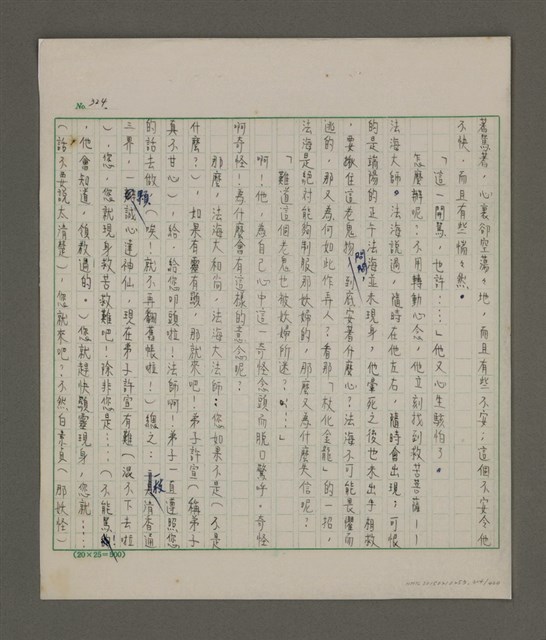 No. 324.
著罵著,心裏卻空蕩々地,而且有些不安;這個不安令他
不快,而且有些惱々然。
「這一鬧罵,也許……」他又心生駭怕了。
怎麼辦呢?不用轉動心念,他立刻找到救苦菩薩——
法海大師。法海說過,隨時在他左右,隨時會出現;可恨
的是端陽的正午法海並未現身,他當死之後也未出手相救
,要揪住這老鬼物問問,到底安著什麼心?法海不可能畏懼而
逃的,那又為何如此作弄人?看那「杖化金龍」的一招,
法海是絕對能夠制服那妖婦的,那麼又為什麼失信呢?
「難道這個老鬼也被妖婦所迷?……」
啊!他,為自己心中這一奇怪念頭而脫口驚呼。奇怪
啊奇怪!為什麼會有這樣的意念呢?
那麼,法海大和尚,法海大法師:您如果不是(不是
什麼?),如果有靈有頭,那就來吧!弟子許宣(稱弟子
真不甘心),給、給您叩頭啦!法師啊!弟子一直遵照您
的話去做(唉!就不再翻舊帳啦!)總之:一瓣清香通
三界,一顆誠心達神仙,現在弟子許宣有難(混不下去啦
),您,您就現身救苦救難吧!除非您是……(不能罵!
,他會知道,領教過的。)您就趕快顯靈現身,您就……
(話不要說太清楚),您就來吧?不然白素貞(那妖怪)
(20×25=500)